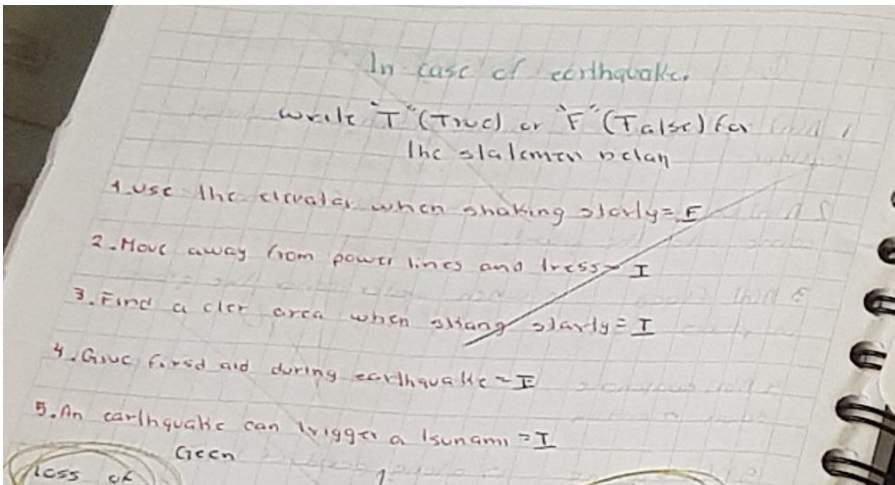 In case of earthquake.
write "T" (True) or "F" (Talse) for
the statemen belan
1. Use the elevator when shaking slarly = F
2. Move away from power lines and tress = T
3. Find a cler area when shang slarly = T
4. Give firsd aid during earthquake = F
5. An earthquake can trigger a tsunami = T
Geen
less of